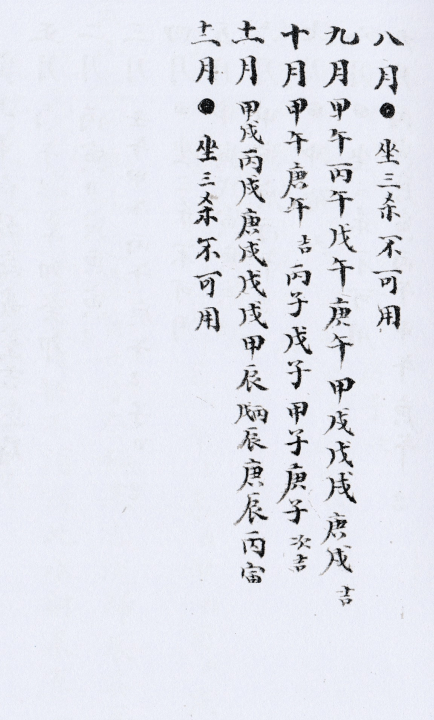 八月●坐三杀不可用
九月甲午丙午戊午庚午甲戌戊戌庚戌吉
十月甲午庚午吉丙子戊子甲子庚子次吉
十一月甲戌丙戌庚戌戊戌甲辰丙戊辰庚辰丙寅
十二月●坐三杀不可用